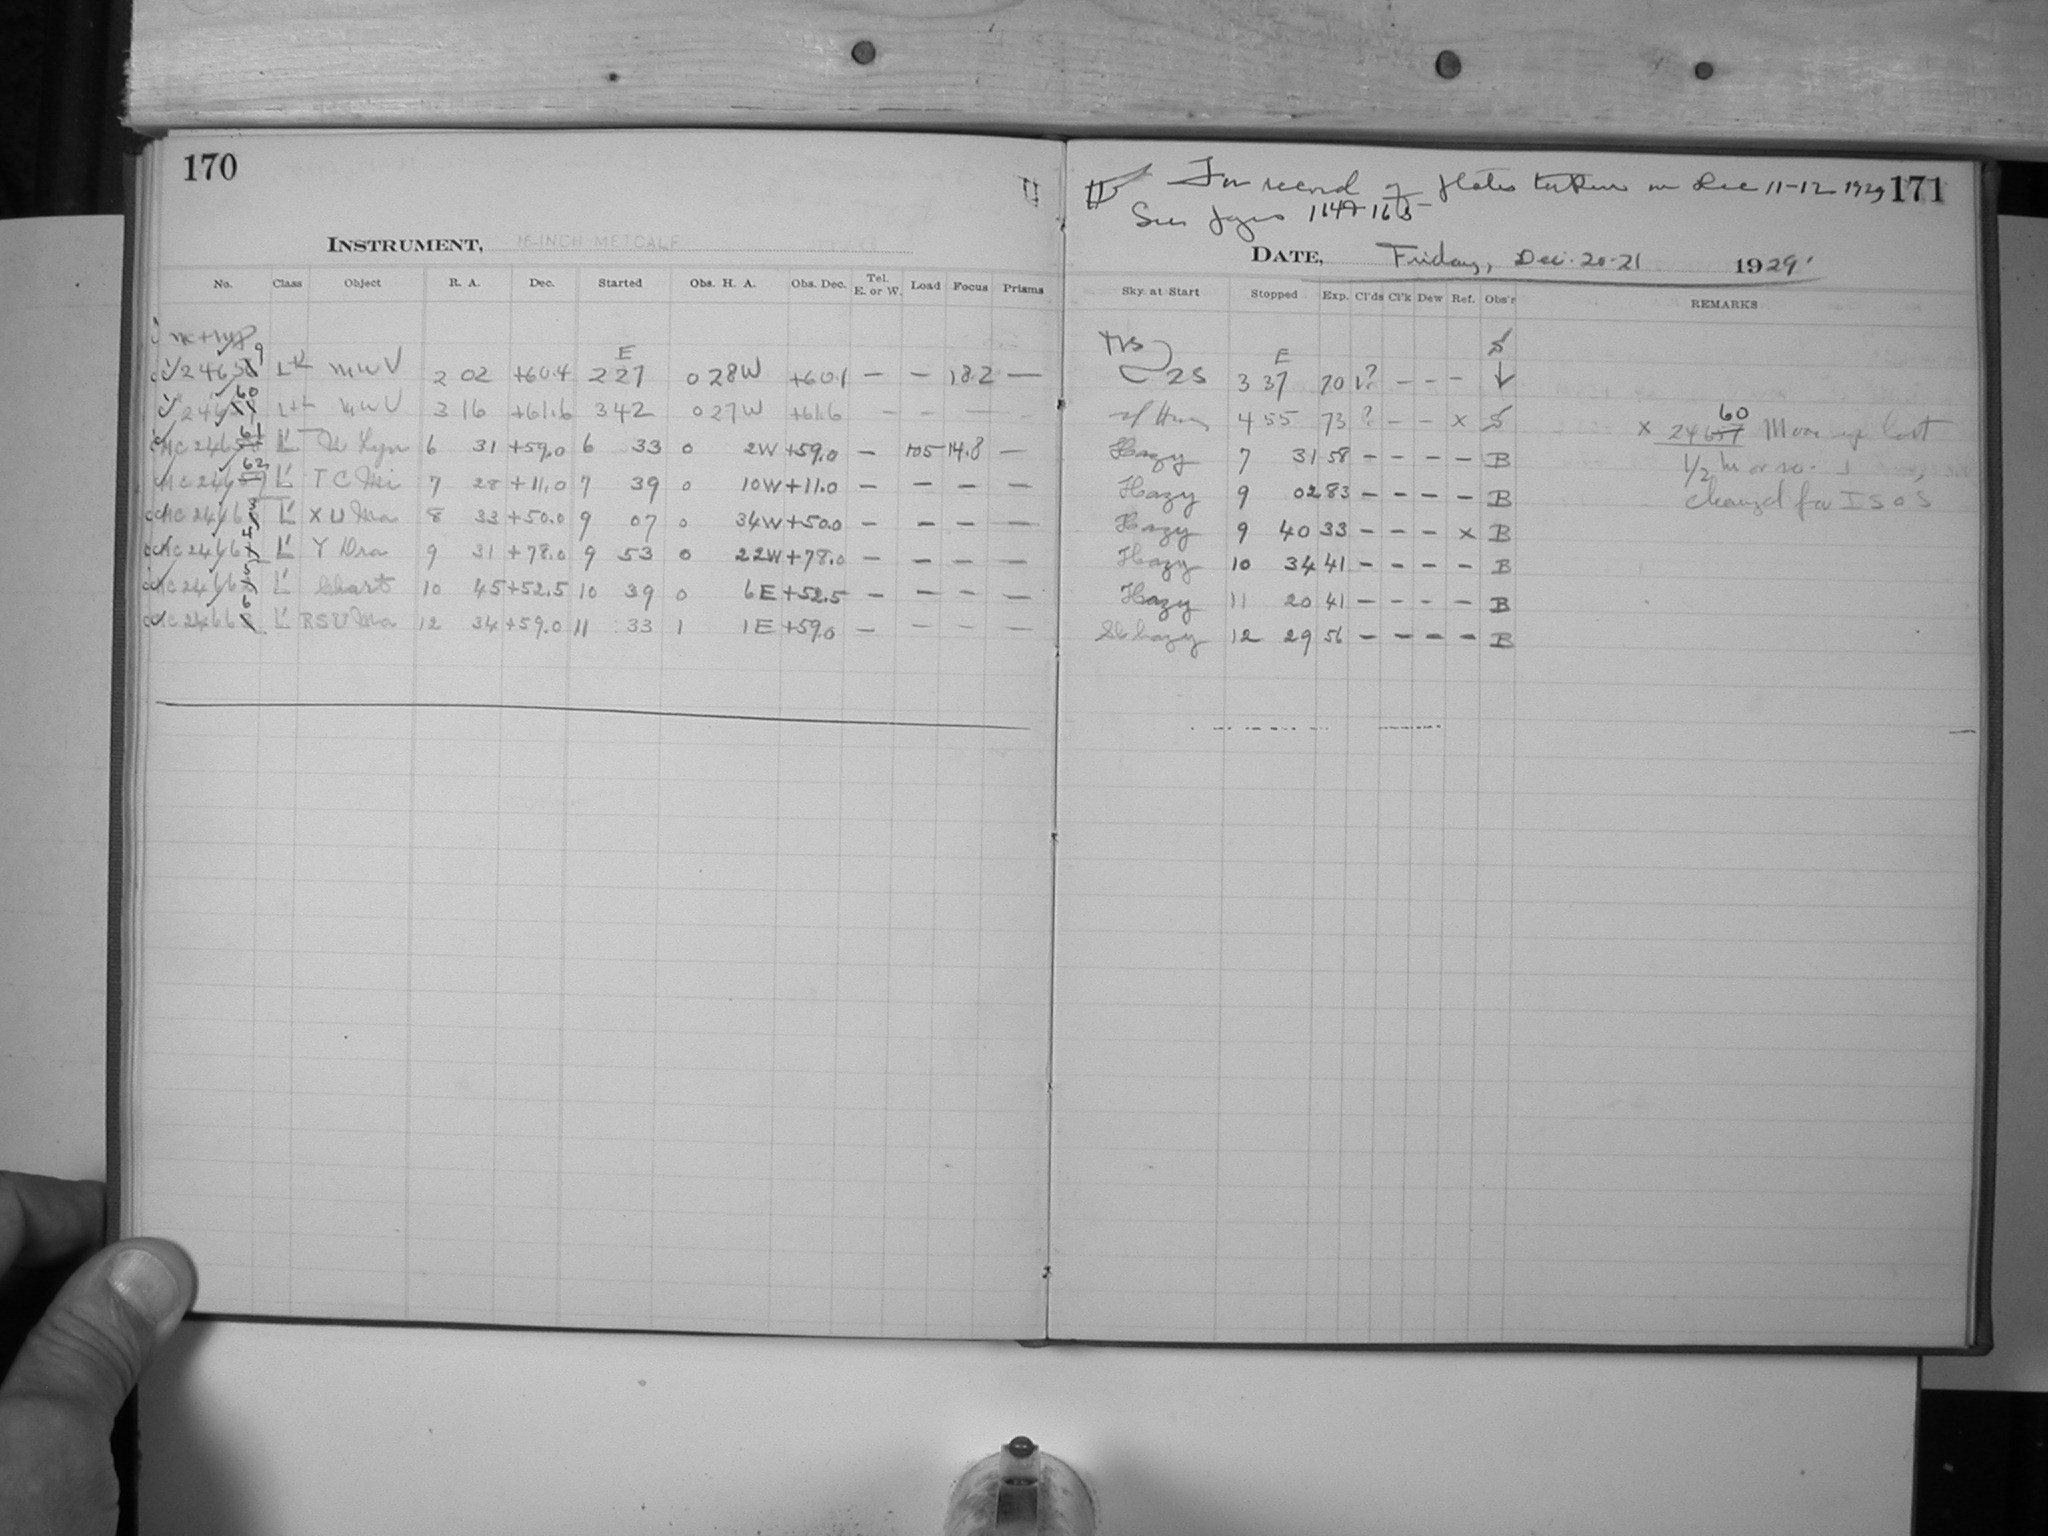 170
INSTRUMENT, 16-INCH METCALF
No. Class Object R. A. Dec. Started Obs. H. A. Obs. Dec. Tel. E. or W. Load Focus Prisms
24659 MWV 2 02 +60.4 E 2 27 0 28W +60.1 — — 18.2 —
24660 MWV 3 16 +61.6 3 42 0 27W +61.6 — — — —
MC 24661 L' U Lyn 6 31 +59.0 6 33 0 2W +59.0 — 105 14.8 —
MC 24662 L' T C Mi 7 28 +11.0 7 39 0 10W +11.0 — — — —
MC 24663 L' X U Ma 8 33 +50.0 9 07 0 34W +50.0 — — — —
MC 24664 L' Y Dra 9 31 +78.0 9 53 0 22W +78.0 — — — —
MC 24665 L' Chart 10 45 +52.5 10 39 0 6E +52.5 — — — —
MC 24666 L' RS U Ma 12 34 +59.0 11 33 1 1E +59.0 — — — —
For record of plates taken on Dec 11-12 1929 171
See pages
DATE, Friday, Dec. 20-21 1929
Sky at Start Stopped Exp. Cl'ds Cl'k Dew Ref. Obs'r REMARKS
S
2S E 3 37 70 ? — — —
4 55 73 ? — — x S x 24660 Moon up last
Hazy 7 31 58 — — — — B 1/2 hr or so.
Hazy 9 02 83 — — — — B changed for ISOS
Hazy 9 40 33 — — — x B
Hazy 10 34 41 — — — — B
Hazy 11 20 41 — — — — B
Sl hazy 12 29 56 — — — — B